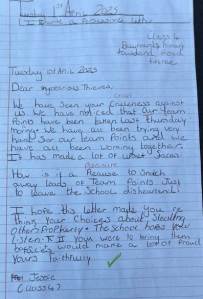 Tuesday 1st April 2025
I Write a
Class 4
Townsend Road
Tuesday 1st April 2025
Dear Mysterious Thiever,
We have seen your cruelness against
us. We have noticed that our team
Points have been taken last thursday
We have all been trying very
hard for our team Points and we
have all been working together.
It has made a lot of upset faces.
How is it a Pleasure to Snitch
away loads of Team Points Just
to leave the School disheartened.
I hope this letter made you re
think your choices about Stealing
others Property. The School hopes you
listen. If you were to bring them
back would make a lot of Proud
yours faithfully
Jessie
(Class 4)